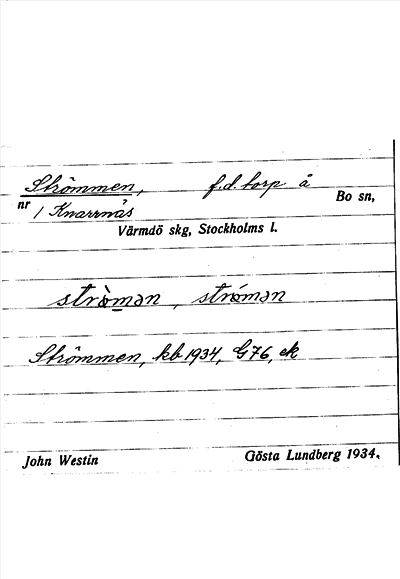 Strömmen, f.d. torp å
Bo sn,
nr 1 Knarrnäs
Värmdö skg, Stockholms l.
strömən, strömən
Strömmen, kb 1934, G76, ek
John Westin Gösta Lundberg 1934.